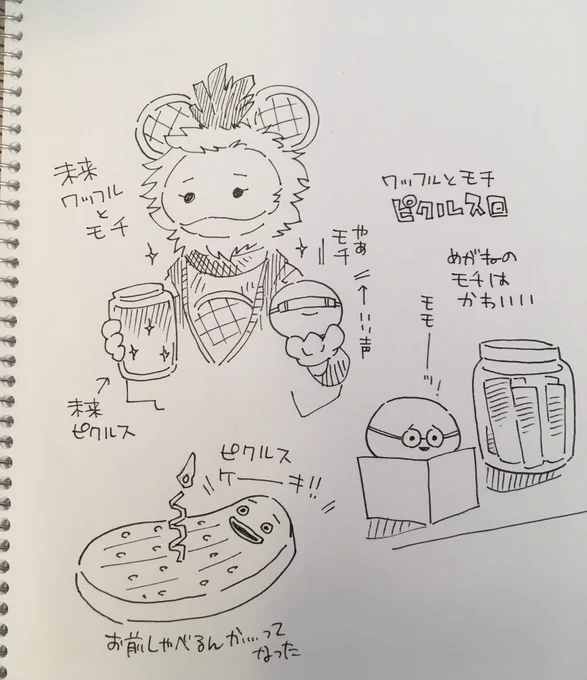 未来
ワッフル
と
モチ
やぁ
モチ
いい声
未来
ピクルス
ワッフルとモチ
ピクルス回
めがねの
モチは
かわいい
モモ──
ピクルス
ケーーキ!!
お前しゃべるんか…って
なった